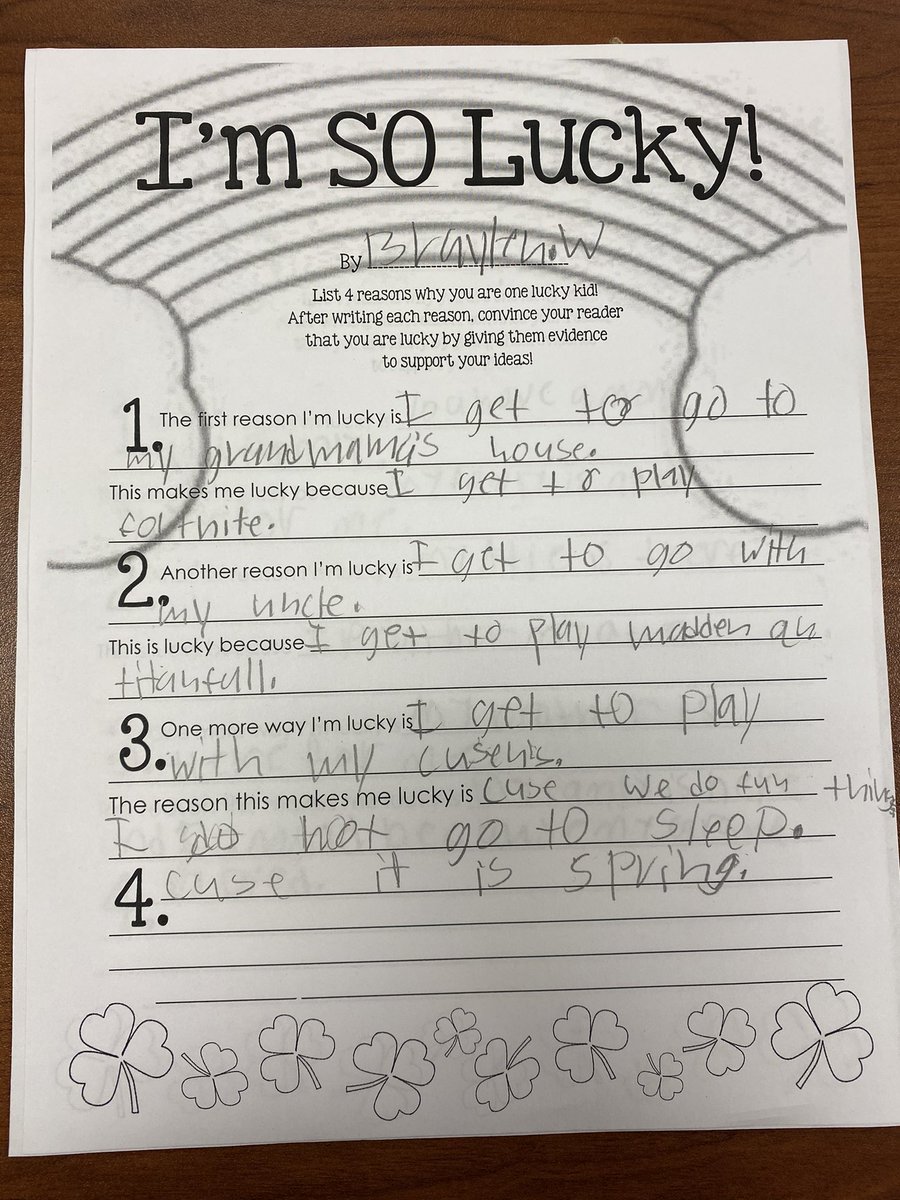 I'm SO Lucky!
By Braylen.W
List 4 reasons why you are one lucky kid!
After writing each reason, convince your reader
that you are lucky by giving them evidence
to support your ideas!
1. The first reason I'm lucky is I get tor go to
my grandmama's house.
This makes me lucky because I get tr play
foltnite.
2. Another reason I'm lucky is I get to go with
my uncle.
This is lucky because I get to play madden an
titanfall.
3. One more way I'm lucky is I get to play
with my cusens.
The reason this makes me lucky is cuse we do fun things
I do not go to sleep.
4. cuse it is spring.